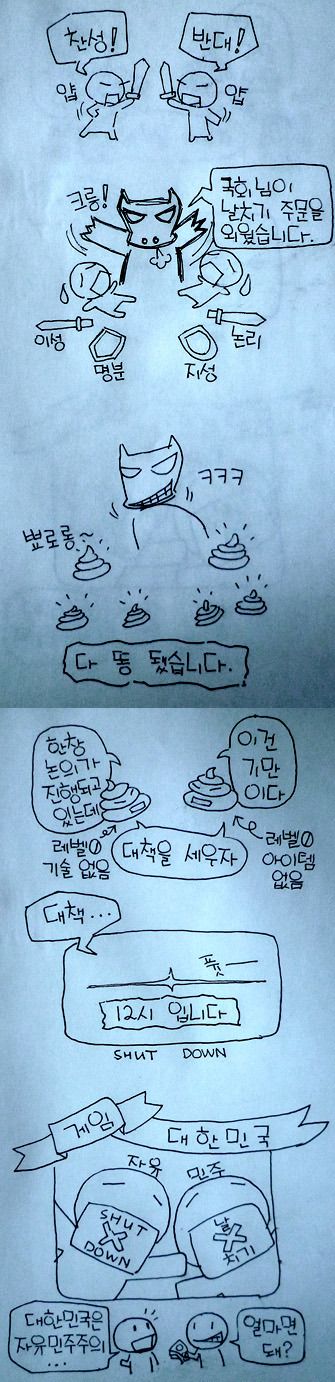 찬성!
반대!
얍
얍
크릉!
국회님이
날치기 주문을
외웠습니다.
이성
논리
명분
지성
ㅋㅋㅋ
뾰로롱~
다 똥 됐습니다.
한창
논의가
진행되고
있는데
이건
기만
이다
레벨0
기술 없음
대책을 세우자
레벨0
아이템
없음
대책...
퓻—
12시 입니다
SHUT DOWN
게임
대한민국
자유 민주
SHUT
DOWN
날
치기
대한민국은
자유민주주의
...
얼마면
돼?